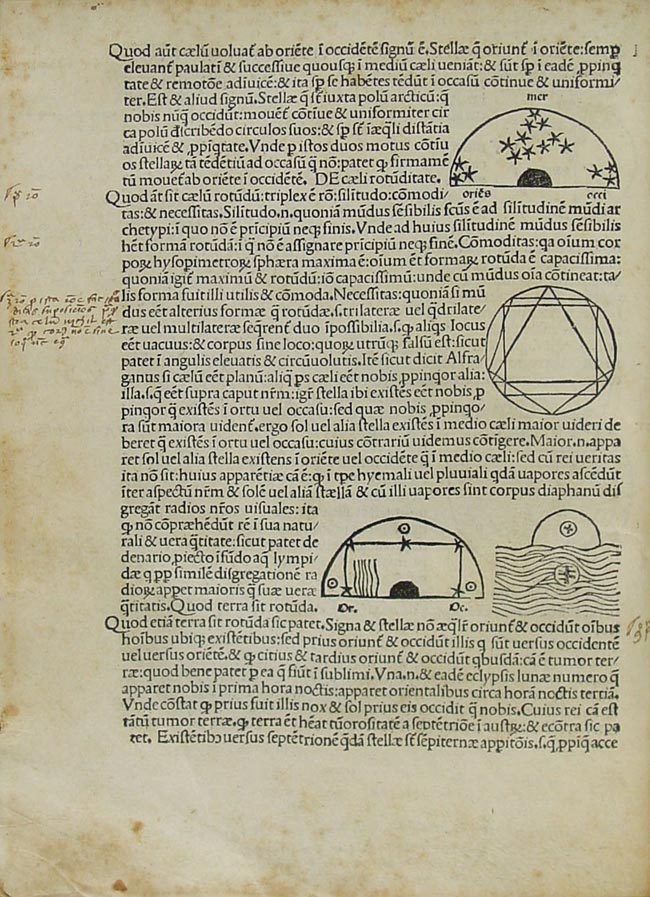 Quod aūt cælū uoluat̄ ab oriēte ī occidētē signū ē. Stellæ q̄ oriunt̄ ī oriēte: semp̱
eleuant̄ paulatī & successiue quousq; ī mediū cæli ueniāt: & sūt sp̄ ī eadē ꝓpinq
tate & remotōe adiuicē: & ita sp̄ se habētes tēdūt ī occasū cōtinue & uniformi/
ter. Est & aliud signū. Stellæ q̄ st̄ iuxta polū arcticū: q̄
nobis nūq̄ occidūt: mouēt̄ cōtiue & uniformiter cir
ca polū describēdo circulos suos: & sp̄ st̄ ī æq̄li distātia
adiuicē & ꝓpīqtate. Vnde p̱ istos duos motus cōtiu
os stellaꝝ tā tēdētiū ad occasū q̄ nō: patet ꝙ firmamē
tū mouet̄ ab oriēte ī occidētē. DE cæli rotūditate.
mer
oriēs
occi
Quod āt sit cælū rotūdū: triplex ē rō: silitudo: cōmodi/
tas: & necessitas. Silitudo .n. quoniā mūdus sēsibilis fcūs ē ad silitudinē mūdi ar
chetypi: ī quo nō ē prīcipiū neq; finis. Vnde ad huius silitudinē mūdus sēsibilis
hēt formā rotūdā: ī q̄ nō ē assignare prīcipiū neq; finē. Cōmoditas: qa oīum cor
poꝝ hysopimetroꝝ sphæra maxima ē: oīum ēt formaꝝ rotūda ē capacissima:
quoniā igit̄ maximū & rotūdū: iō capacissimū: unde cū mūdus oīa cōtineat: ta/
lis forma fuit illi utilis & cōmoda. Necessitas: quoniā si mū
dus eēt alterius formæ q̄ rotūdæ. s. trilateræ uel q̄drilate/
ræ uel multilateræ seqrent̄ duo īpossibilia. s. ꝙ aliqs locus
eēt uacuus: & corpus sine loco: quoꝝ utrūq; falsū est: sicut
patet ī angulis eleuatis & circūuolutis. Itē sicut dicit Alfra/
ganus si cælū eēt planū: aliq̄ ps cæli eēt nobis ꝓpinqor alia:
illa .s. q̄ eēt supra caput nr̄m: igr̄ stella ibi existēs eēt nobis ꝓ
pinqor q̄ existēs ī ortu uel occasu: sed quæ nobis ꝓpinqo/
ra sūt maiora uident̄. ergo sol uel alia stella existēs ī medio cæli maior uideri de
beret q̄ existēs ī ortu uel occasu: cuius cōtrariū uidemus cōtigere. Maior .n. appa
ret sol uel alia stella existens ī oriēte uel occidēte q̄ ī medio cæli: sed cū rei ueritas
ita nō sit: huius apparētiæ cā ē: ꝙ ī tp̄e hyemali uel pluuiali qdā uapores ascēdūt
īter aspectū nr̄m & solē uel aliā stællā & cū illi uapores sint corpus diaphanū dis
gregāt radios nr̄os uisuales: ita
ꝙ nō cōpræhēdūt rē ī sua natu/
rali & uera q̄titate: sicut patet de
denario ꝓiecto ī fūdo aq̄ lympi/
dæ q ꝓp̱ similē disgregationē ra
dioꝝ appet maioris q̄ suæ ueræ
q̄titatis. Quod terra sit rotūda.
Or.
Oc.
Quod etiā terra sit rotūda sic patet. Signa & stellæ nō æq̄lr̄ oriunt̄ & occidūt oībus
hoībus ubiq; existētibus: sed prius oriunt̄ & occidūt illis q sūt uersus occidentē
uel uersus oriētē. & ꝙ citius & tardius oriunt̄ & occidūt qbusdā: cā ē tumor ter/
ræ: quod bene patet p̱ ea q̄ fiūt ī sublimi. Vna .n. & eadē eclypsis lunæ numero q̄
apparet nobis ī prima hora noctis: apparet orientalibus circa horā noctis tertiā.
Vnde cōstat ꝙ prius fuit illis nox & sol prius eis occidit q̄ nobis. Cuius rei cā est
tātū tumor terræ. ꝙ terra ēt hēat tūorositatē a septētriōe ī austꝝ: & ecōtra sic pa
tet. Existētibꝰ uersus septētrionē q̄dā stellæ st̄ sēpiternæ appitōis. s. q̄ ꝓpīq acce